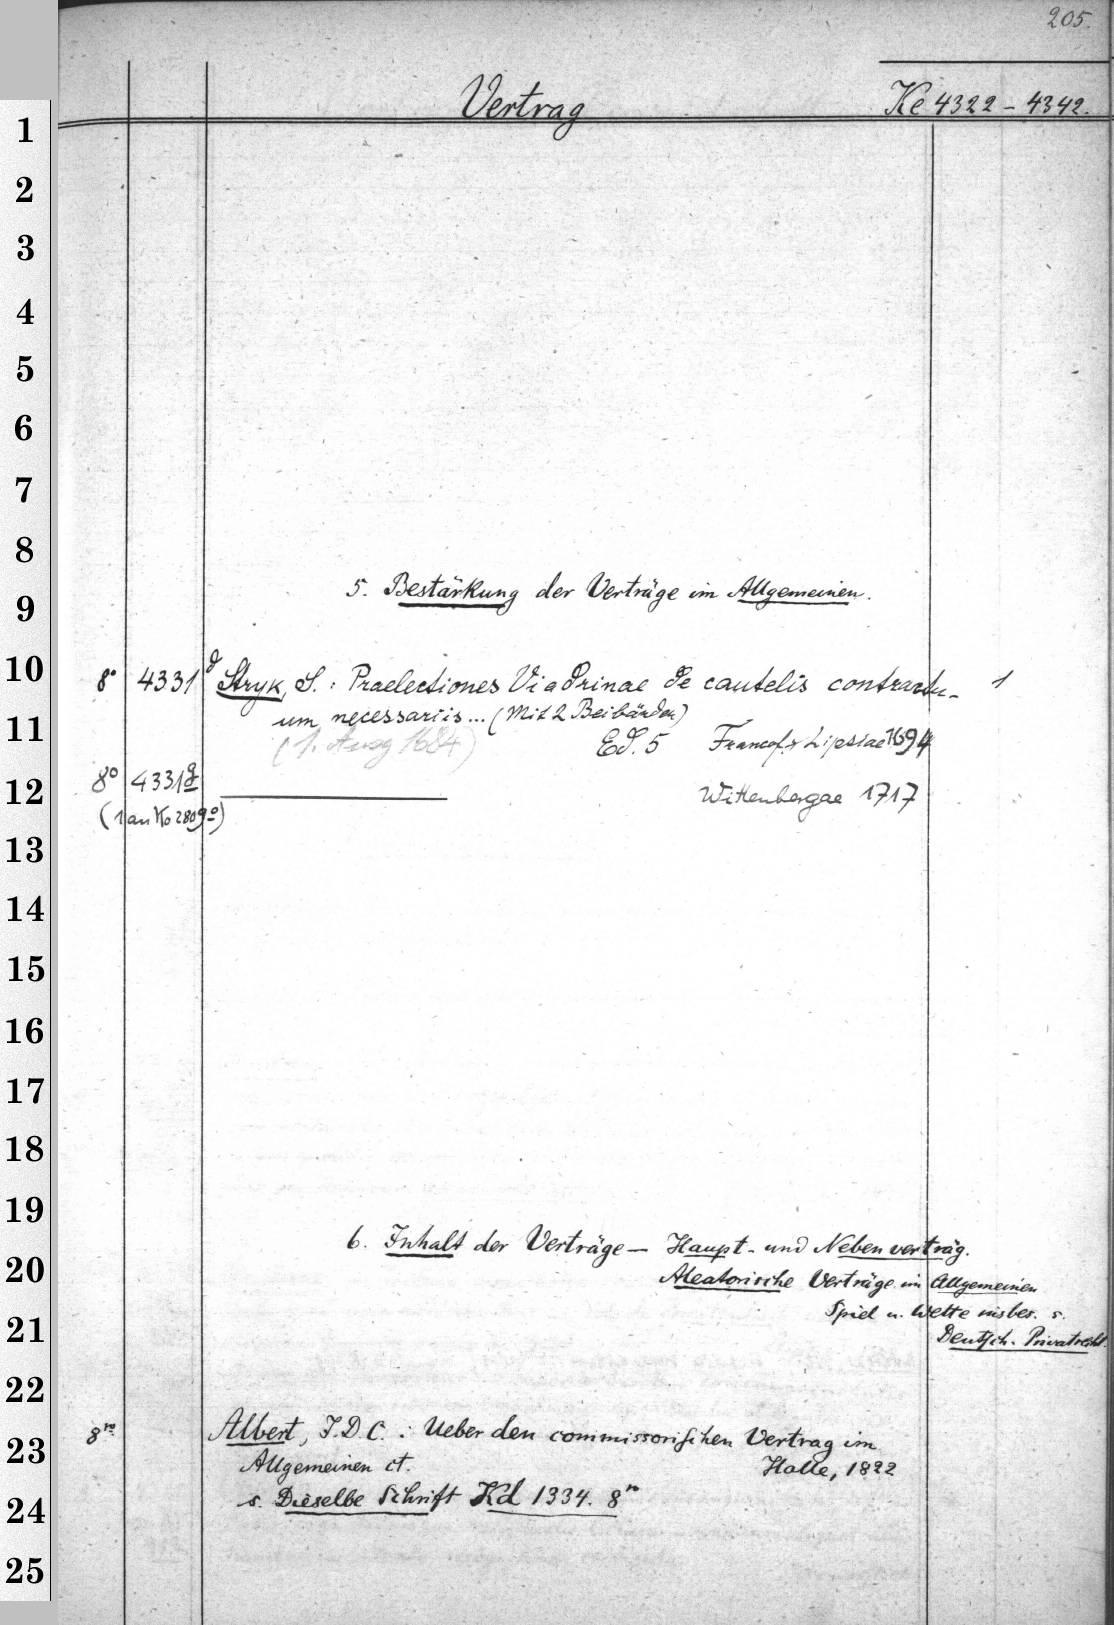 205.
Vertrag Ke 4322 – 4342.
1
2
3
4
5
6
7
8
5. Bestärkung der Verträge im Allgemeinen.
9
10 8° 4331 d Stryk, S.: Praelectiones Viadrinae de cautelis contractu- 1
um necessariis... (Mit 2 Beibänden)
11 (1. Ausg 1684) Ed. 5 Francof. & Lipsiae 1694
8° 4331g
12 Wittenbergae 1717
(1 an Ko 2809°)
13
14
15
16
17
18
19
6. Inhalt der Verträge — Haupt- und Nebenverträg.
20 Aleatorische Verträge im Allgemeinen
Spiel u. Wette insbes. s.
21 Deutsch. Privatrecht.
22
8vo Albert, J.D.C.: Ueber den commissorischen Vertrag im
23 Allgemeinen ct. Halle, 1822
24 s. Dieselbe Schrift Kd 1334. 8vo
25